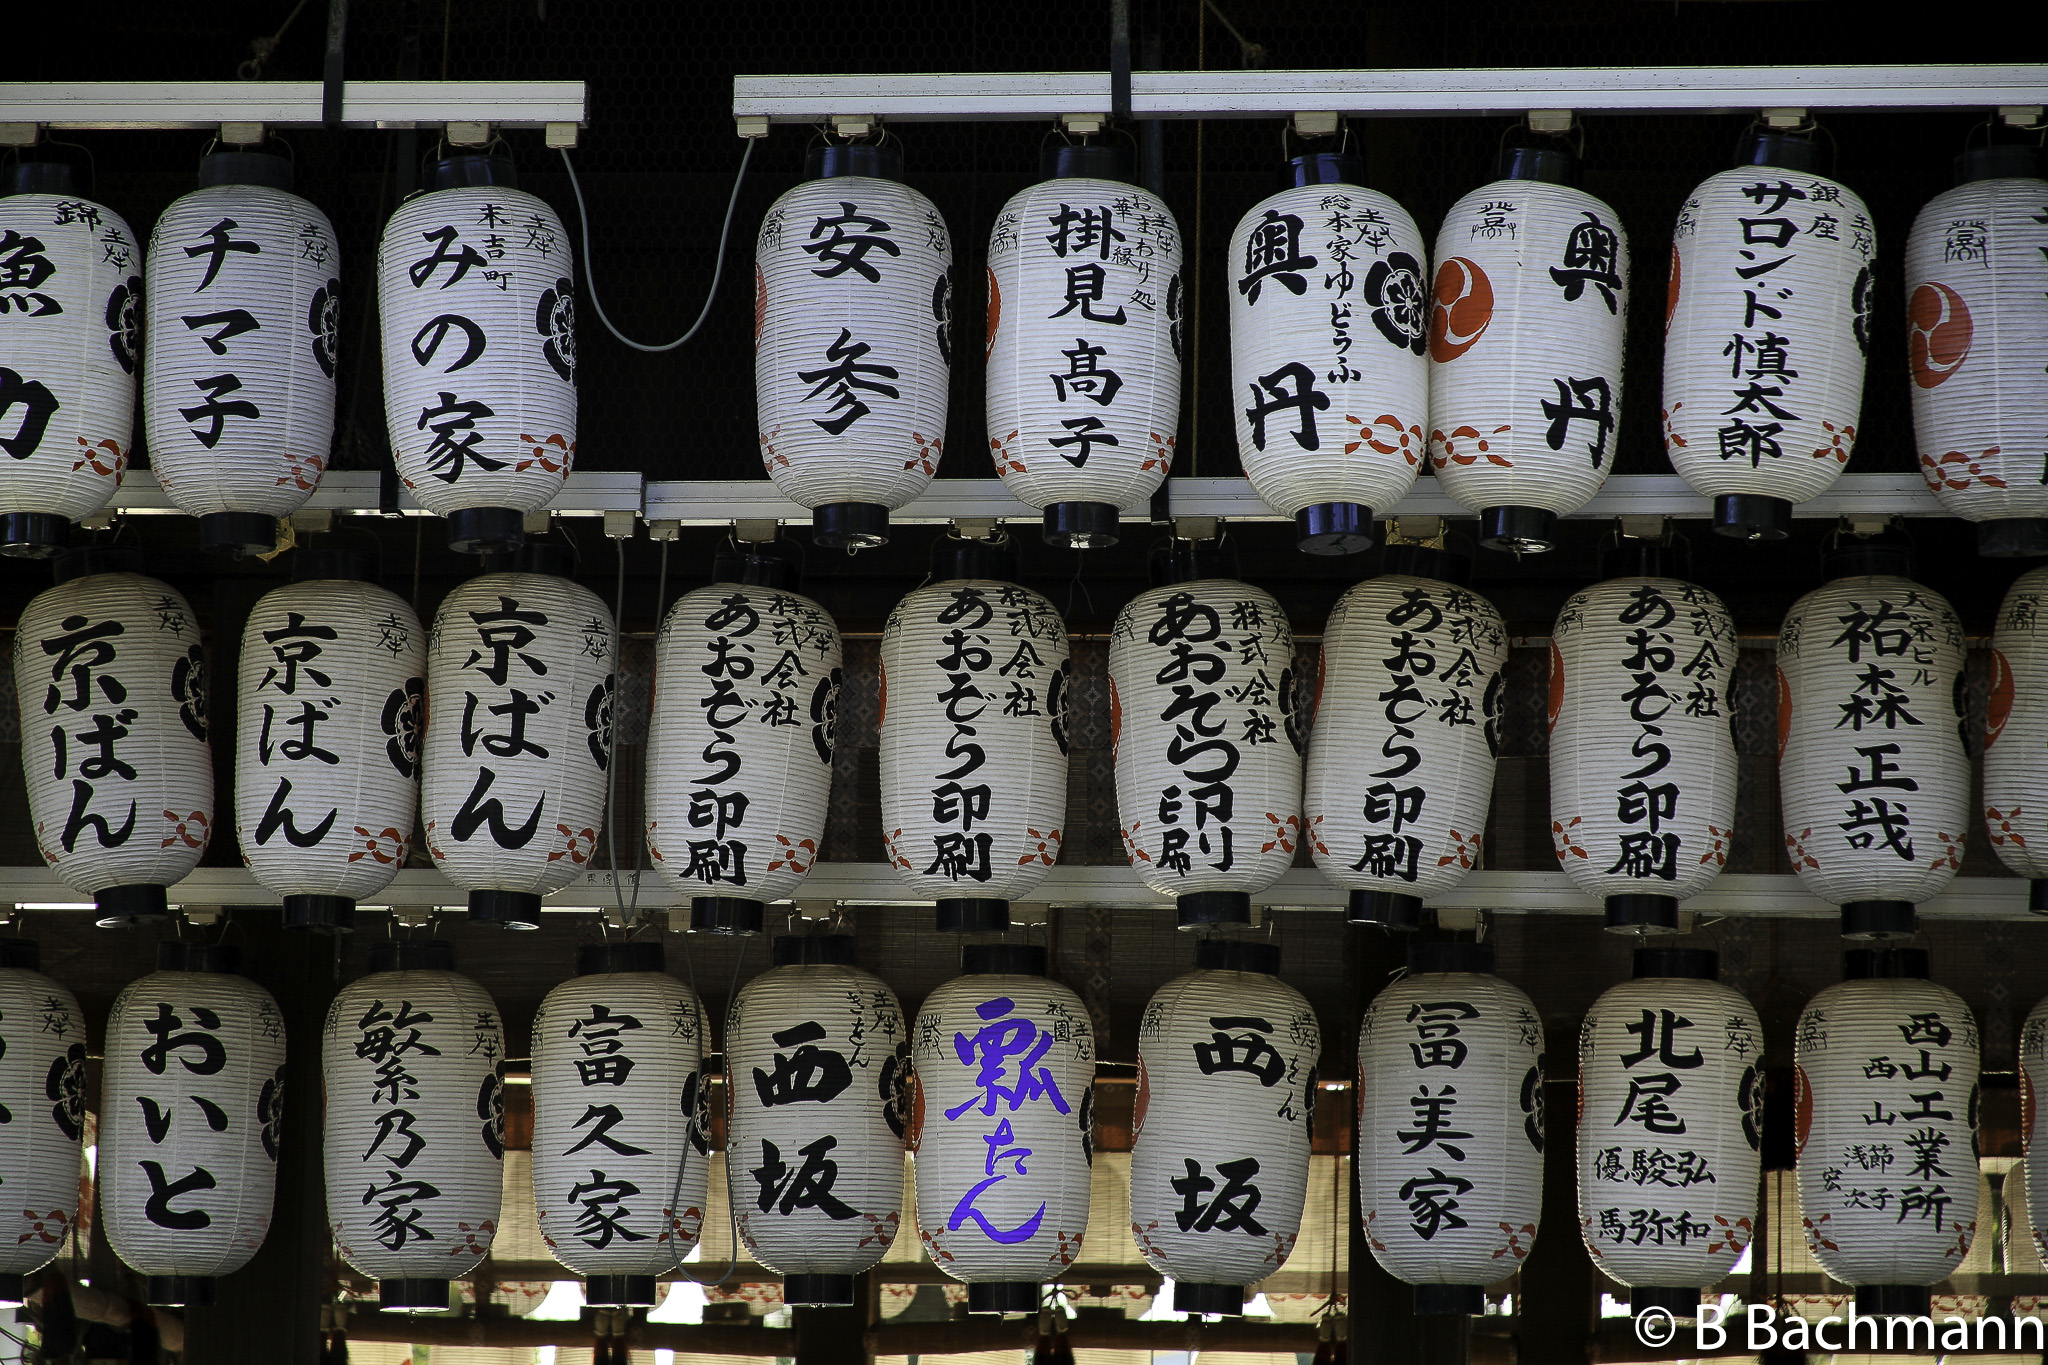 錦
魚力
チマ子
末吉町
みの家
安参
おまわり処
華縁
掛見高子
総本家ゆどうふ
奥丹
奥丹
銀座
サロン・ド慎太郎
京ばん
京ばん
京ばん
株式会社
あおぞら印刷
株式会社
あおぞら印刷
株式会社
あおぞら印刷
株式会社
あおぞら印刷
株式会社
あおぞら印刷
大栄ビル
祐森正哉
おいと
繁乃家
富久家
ぎをん
西坂
祇園
瓢たん
ぎをん
西坂
冨美家
北尾
弘和
駿弥
優馬
西山工業所
西山
節子
浅次
宏
© B Bachmann